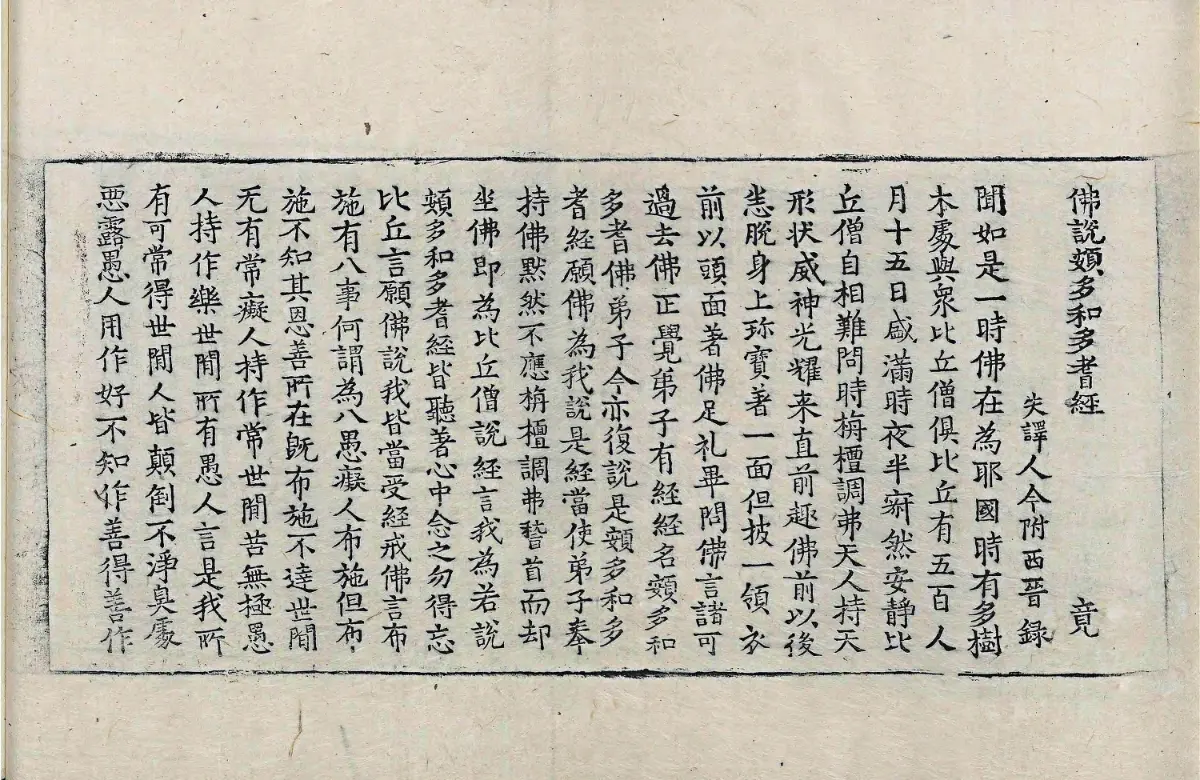 佛說頞多和多耆經
失譯人今附西晉錄 竟
聞如是一時佛在為耶國時有多樹
木處與眾比丘僧俱比丘有五百人
月十五日盛滿時夜半寂然安靜比
丘僧自相難問時栴檀調弗天人持天
形状威神光耀来直前趣佛前以後
悉脫身上珎寶著一面但披一領衣
前以頭面著佛足礼畢問佛言諸可
過去佛正覺弟子有經經名頞多和
多耆佛弟子今亦復說是頞多和多
者經願佛為我說是經當使弟子奉
持佛默然不應栴檀調弗稽首而却
坐佛即為比丘僧說經言我為若說
頞多和多耆經皆聽著心中念之勿得忘
比丘言願佛說我皆當受經戒佛言布
施有八事何謂為八愚癡人布施但布
施不知其恩善所在既布施不達世間
无有常癡人持作常世間苦無極愚
人持作樂世間所有愚人言是我所
有可常得世間人皆顛倒不淨臭處
惡露愚人用作好不知作善得善作